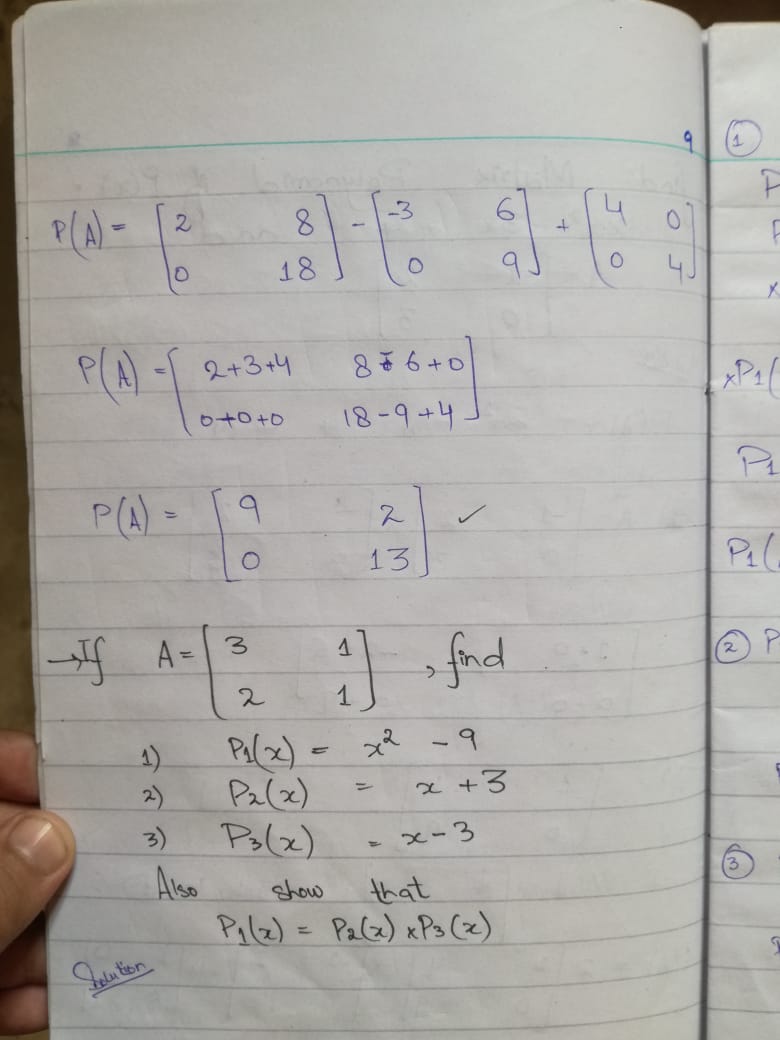 9
P(A) = [2 8; 0 18] - [-3 6; 0 9] + [4 0; 0 4]
P(A) = [2+3+4 8-6+0; 0+0+0 18-9+4]
P(A) = [9 2; 0 13] ✓
→If A = [3 1; 2 1], find
1) P1(x) = x² - 9
2) P2(x) = x + 3
3) P3(x) = x - 3
Also show that
P1(x) = P2(x) × P3(x)
Solution
①
P
P
x
xP1(
P1
P1(
② P
③